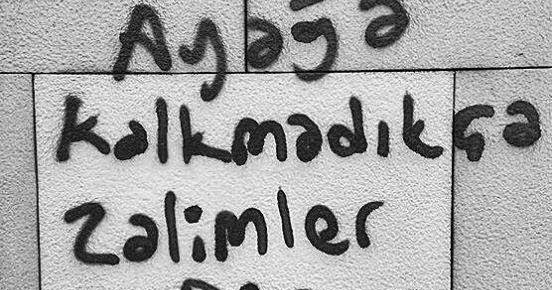 Ayağa
kalkmadıkça
zalimler